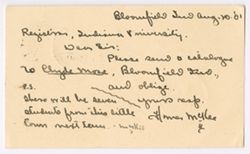 Bloomfield Ind Aug. 10. 01
Registrar, Indiana University.
Dear Sir:
Please send a catalogue
to Clyde Morse, Bloomfield Ind.,
and oblige
P.S.
There will be seven yours resp.
students from this little
Town next term.